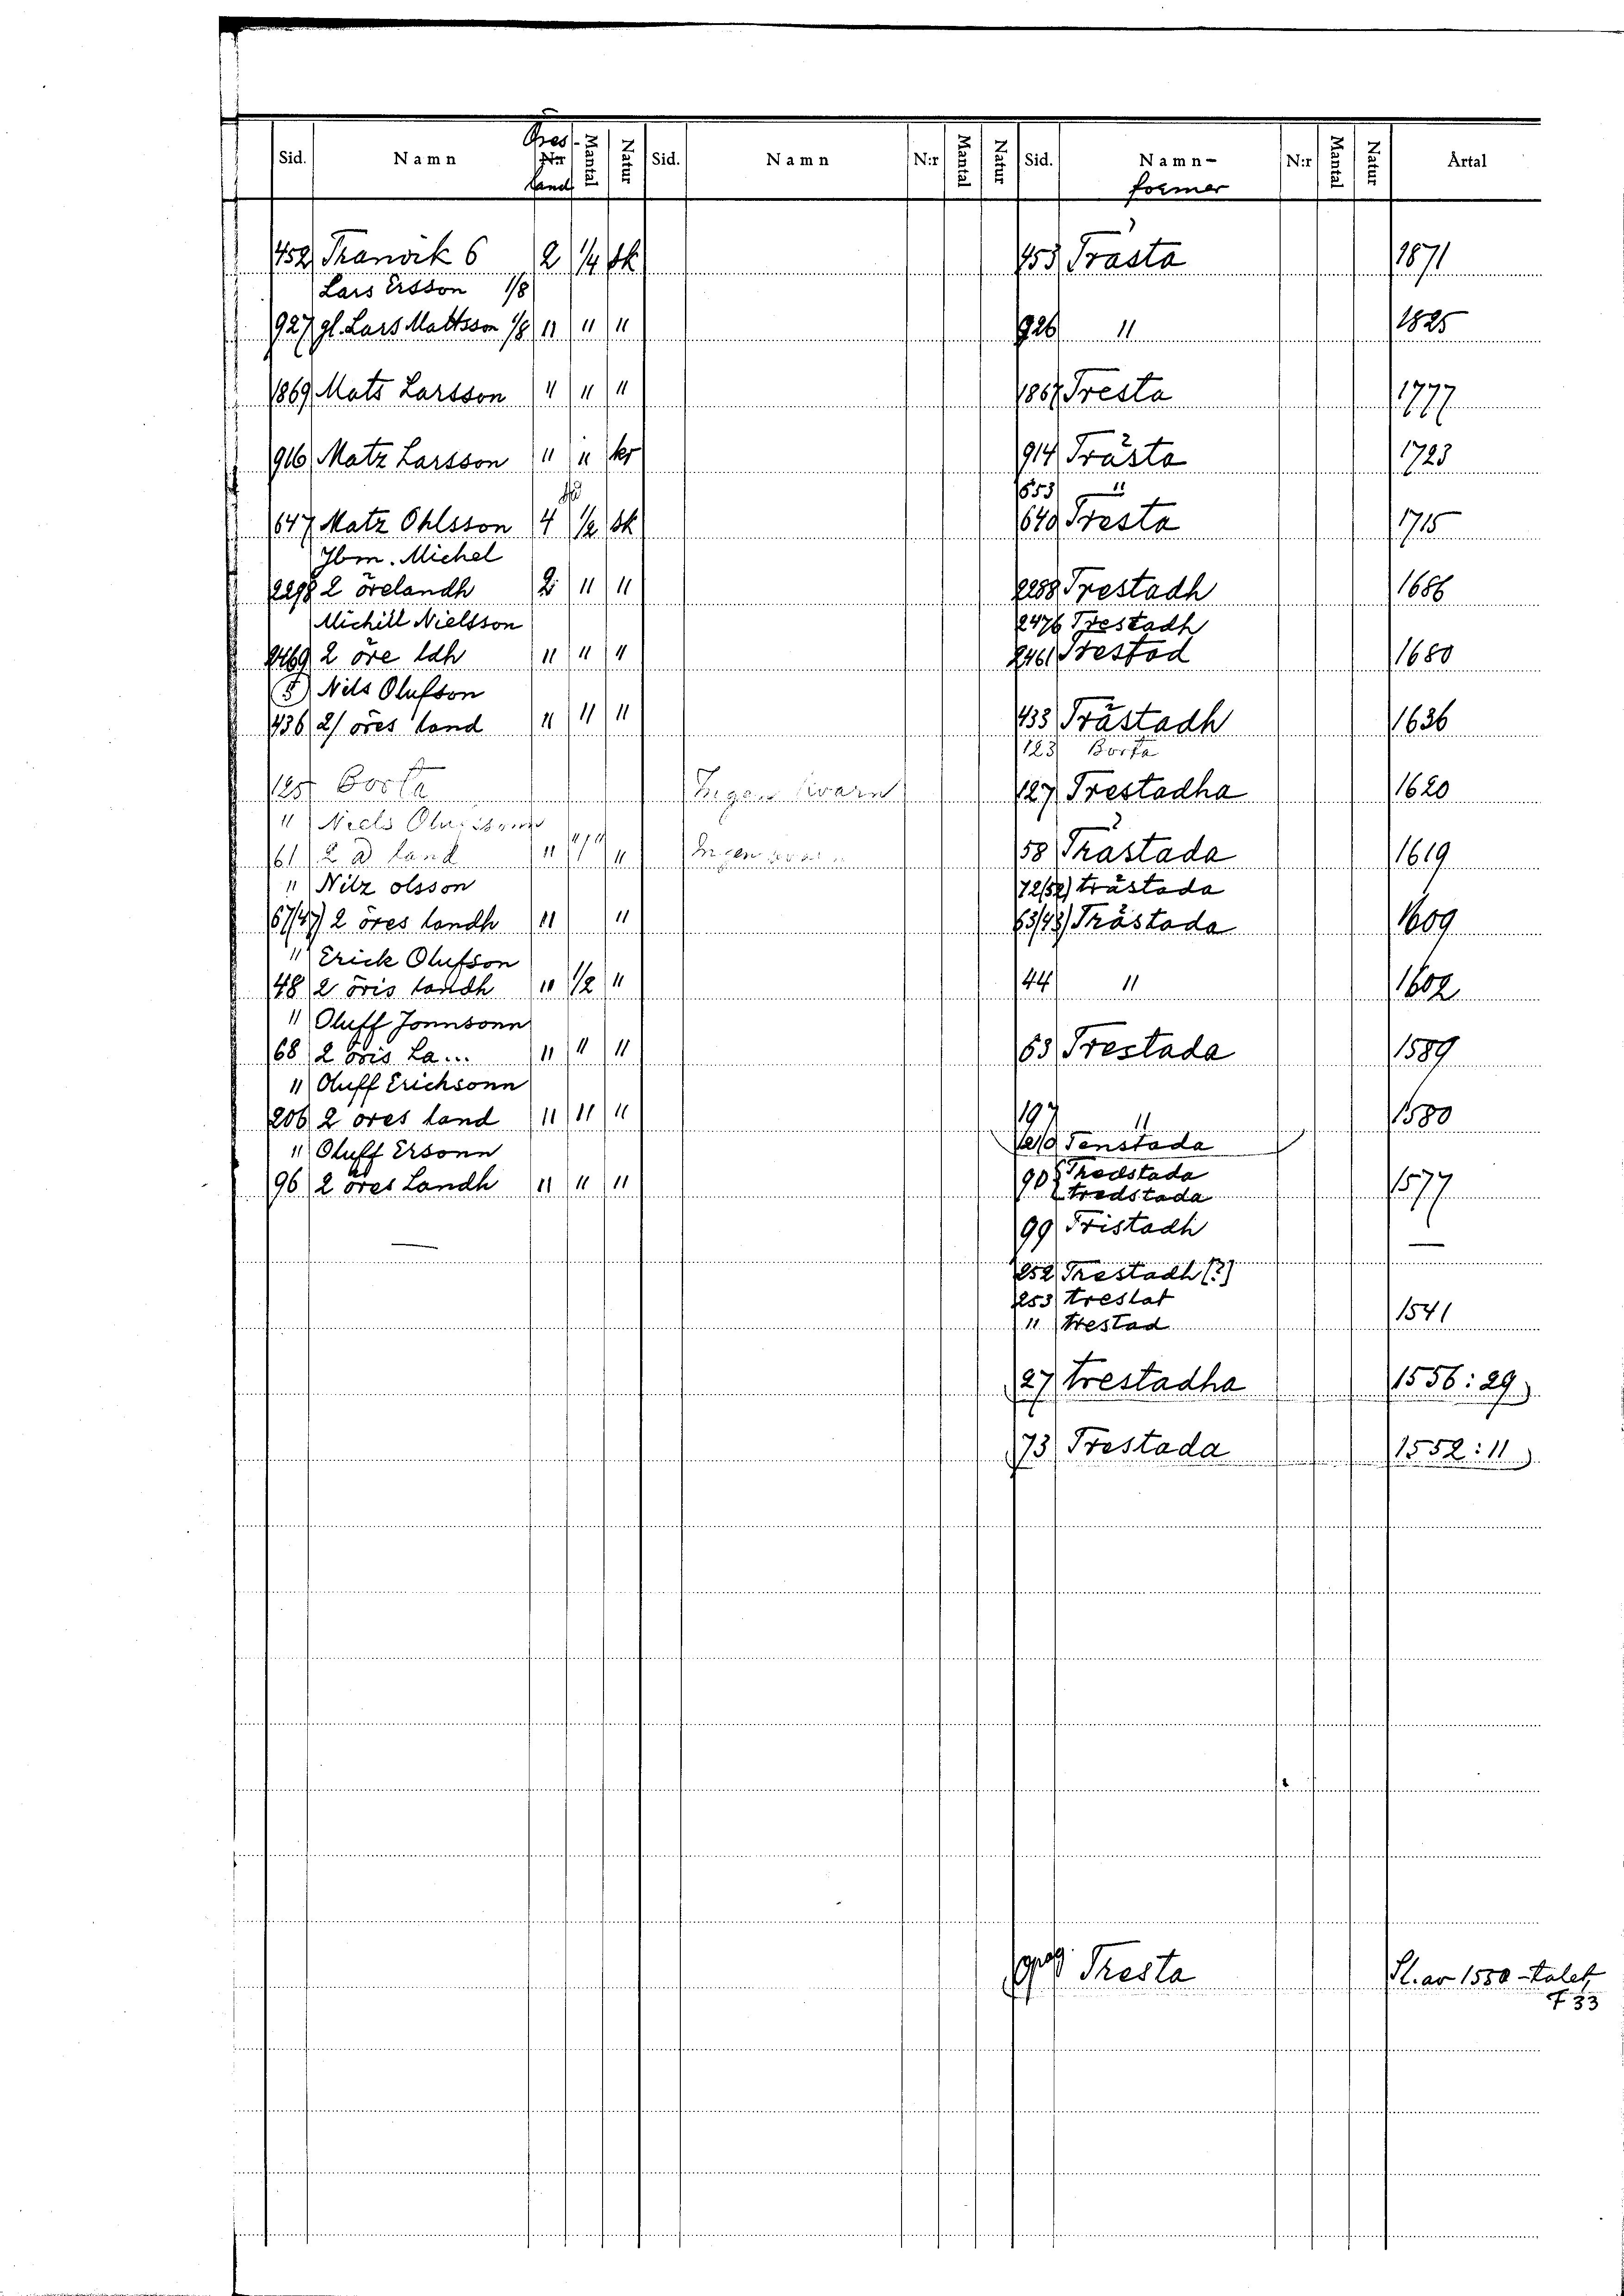 Öres-
Sid. Namn N:r Mantal Natur Sid. Namn N:r Mantal Natur Sid. Namn- N:r Mantal Natur Årtal
land former
452 Tranvik 6 2 1/4 sk 453 Trästa 1871
Lars Ersson 1/8
927 gl. Lars Mattsson 1/8 " " " 926 " 1825
1869 Mats Larsson " " " 1867 Tresta 1777
916 Matz Larsson " " kr 914 Trästa 1723
653 "
647 Matz Ohlsson 4 1/2 sk 649 Tresta 1715
Ibm. Michel
2298 2 örelandh 2 " " 2288 Trestadh 1686
Michill Nielsson 2476 Trestadh
2469 2 öre ldh " " " 2461 Trestad 1680
5) Nils Olufson
436 2/ öres land " " " 433 Trästadh 1636
123 Borta
125 Borta Ingen kvarn 127 Trestadha 1620
" Niels
61 2 land " " " Ingen 58 Trästada 1619
" Nilz olsson 72/52) trästada
67/47) 2 öres landh " " 63/43) Trästada 1609
" Erick Olufson
48 2 öris landh " 1/2 " 44 " 1602
" Oluff Jonnsonn
68 2 öris La... " " " 63 Trestada 1589
" Oluff Erichsonn
206 2 öres land " " " 197 " 1580
" Oluff Ersonn Tenstada
96 2 öres Landh " " " 90 { Tredstada 1577
tredstada
99 Tristadh
— —
252 Trestadh (?)
253 trestat
" trestad 1541
27 trestadha 1556:29
73 Trestada 1552:11
Tresta Jl. av 1550-talet
F 33